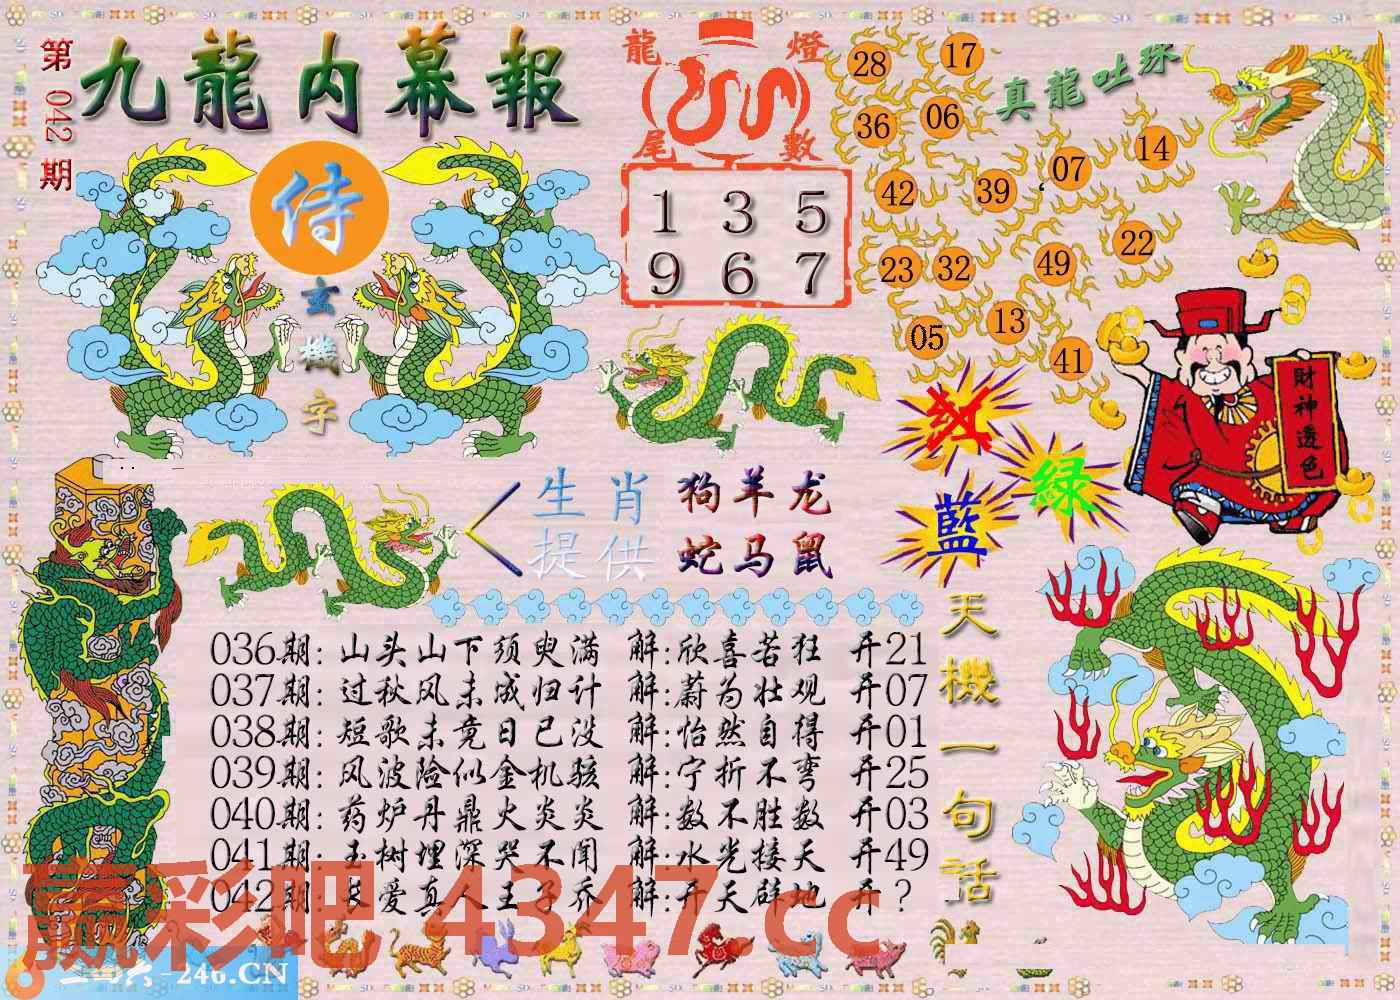 第042期
九龍内幕報
侍
玄機字
龍燈
尾數
1 3 5
9 6 7
真龍吐珠
28 17
36 06
42 39 07 14
23 32 49 22
05 13 41
財神透色
红
绿
藍
生肖 狗羊龙
提供 蛇马鼠
天機一句話
036期: 山头山下须臾满 解:欣喜若狂 开21
037期: 过秋风未成归计 解:蔚为壮观 开07
038期: 短歌未竟日已没 解:怡然自得 开01
039期: 风波险似金机骇 解:宁折不弯 开25
040期: 药炉丹鼎火炎炎 解:数不胜数 开03
041期: 玉树埋深哭不闻 解:水光接天 开49
042期: 长爱真人王子乔 解:开天辟地 开?
赢彩吧 4347.cc
二四六 -246.CN